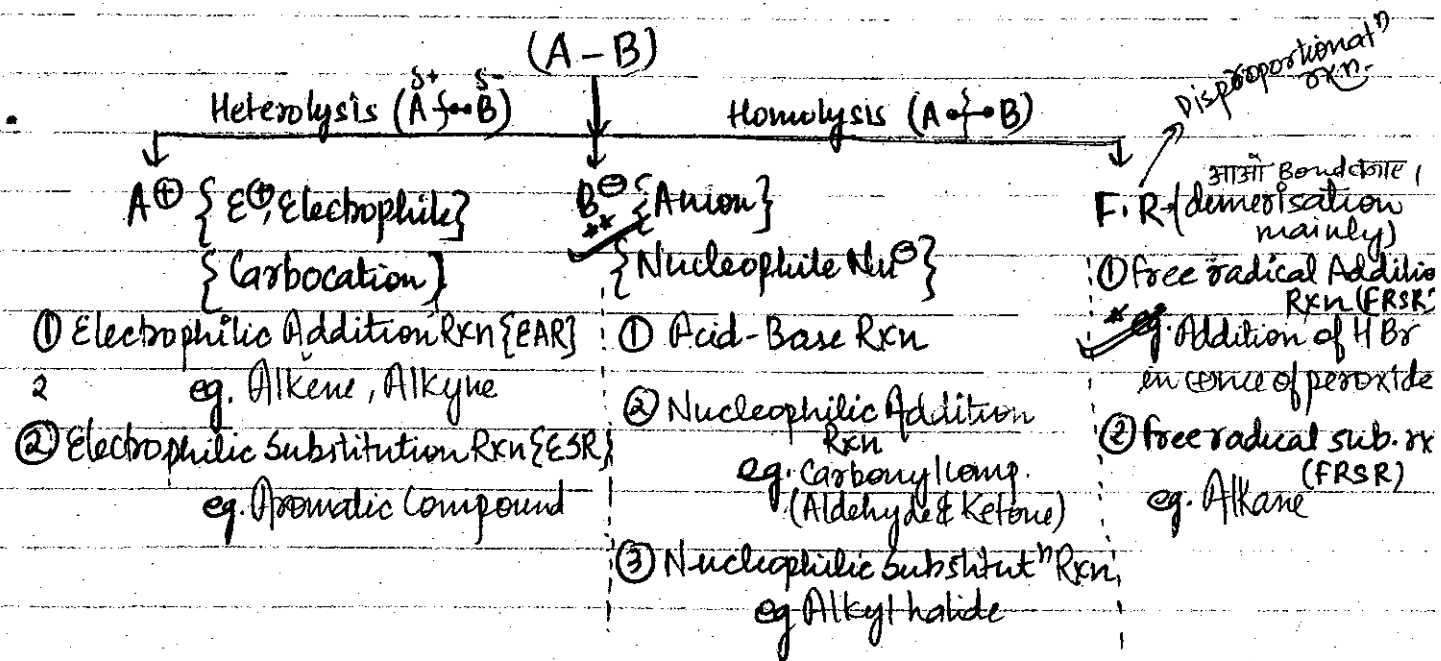 (A – B)
Disproportionatⁿ
rxn.
Heterolysis (A^δ+ B^δ-)
Homolysis (A B)
A⊕ {E⊕, Electrophile}
{Carbocation}
① Electrophilic Addition Rxn {EAR}
2 eg. Alkene, Alkyne
② Electrophilic Substitution Rxn {ESR}
eg. Aromatic Compound
B⊖ {Anion}
**
{Nucleophile Nu⊖}
① Acid-Base Rxn
② Nucleophilic Addition
Rxn
eg. Carbonyl Comp.
(Aldehyde & Ketone)
③ Nucleophilic Substitutⁿ Rxn,
eg Alkyl halide
आओ Bond
F.R. (demerisation
mainly)
① free radical Additio
Rxn (FRSR)
* eg. Addition of HBr
in of peroxide
② free radical sub. rx
(FRSR)
eg. Alkane